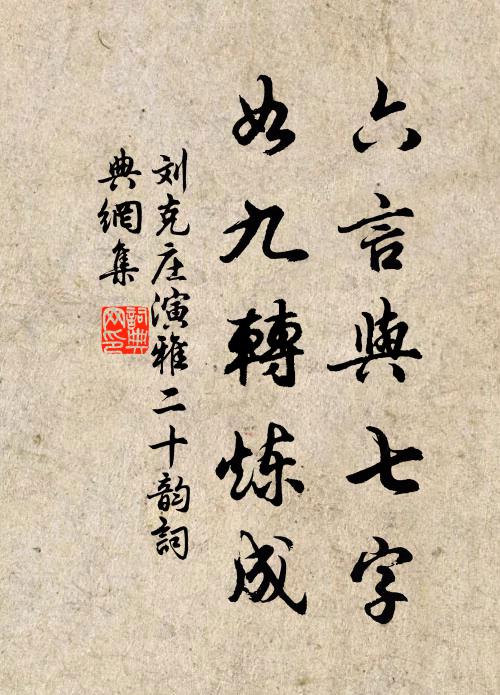 六言與七字
如九轉煉成
刘克庄演雅二十韵詞
典網集
詞典
网印